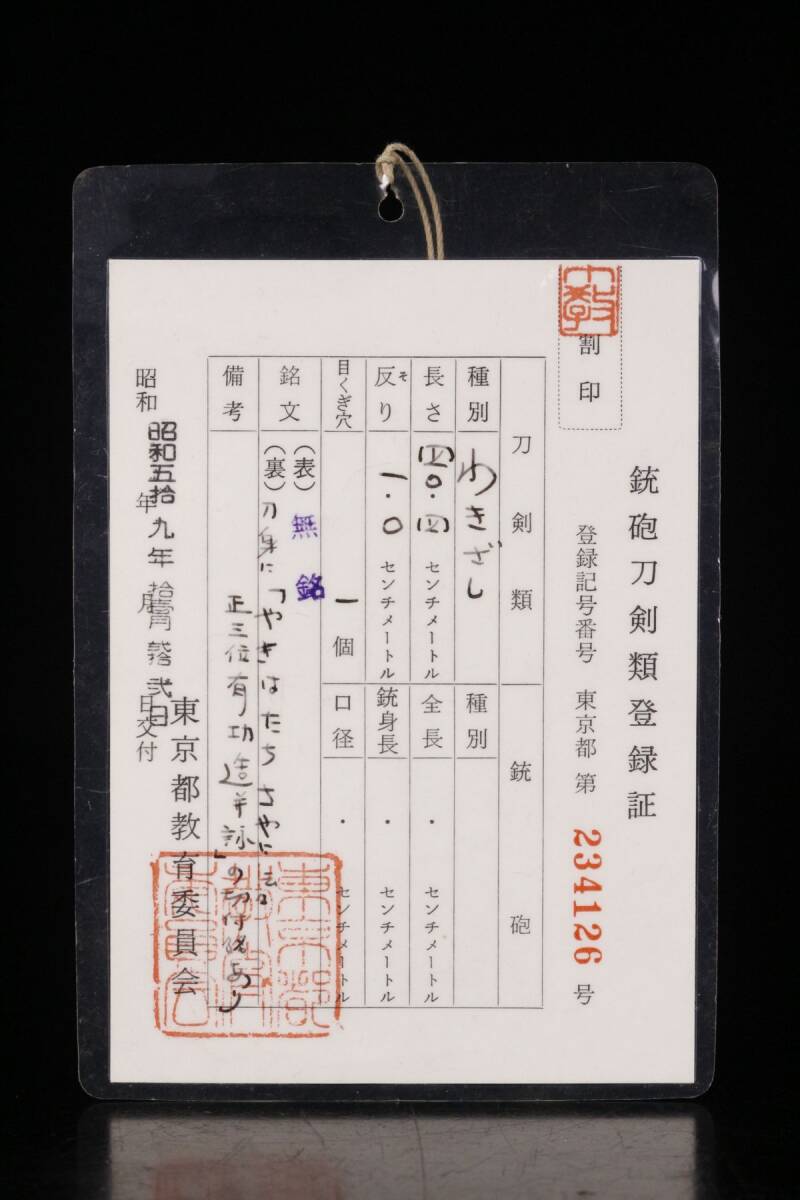 割印
銃砲刀剣類登録証
登録記号番号 東京都 第 234126 号
刀剣類
銃砲
種別 わきざし
種別
長さ 四〇.四 センチメートル
全長 . センチメートル
反り そ 一.〇 センチメートル
銃身長 . センチメートル
目くぎ穴 一個
口径 . センチメートル
銘文 (表) 無銘
(裏) 刀身に「やきはたち さやに
正三位有功造并詠」の切付銘あり
備考
昭和 年 月 日交付
昭和五拾九年
東京都教育委員会